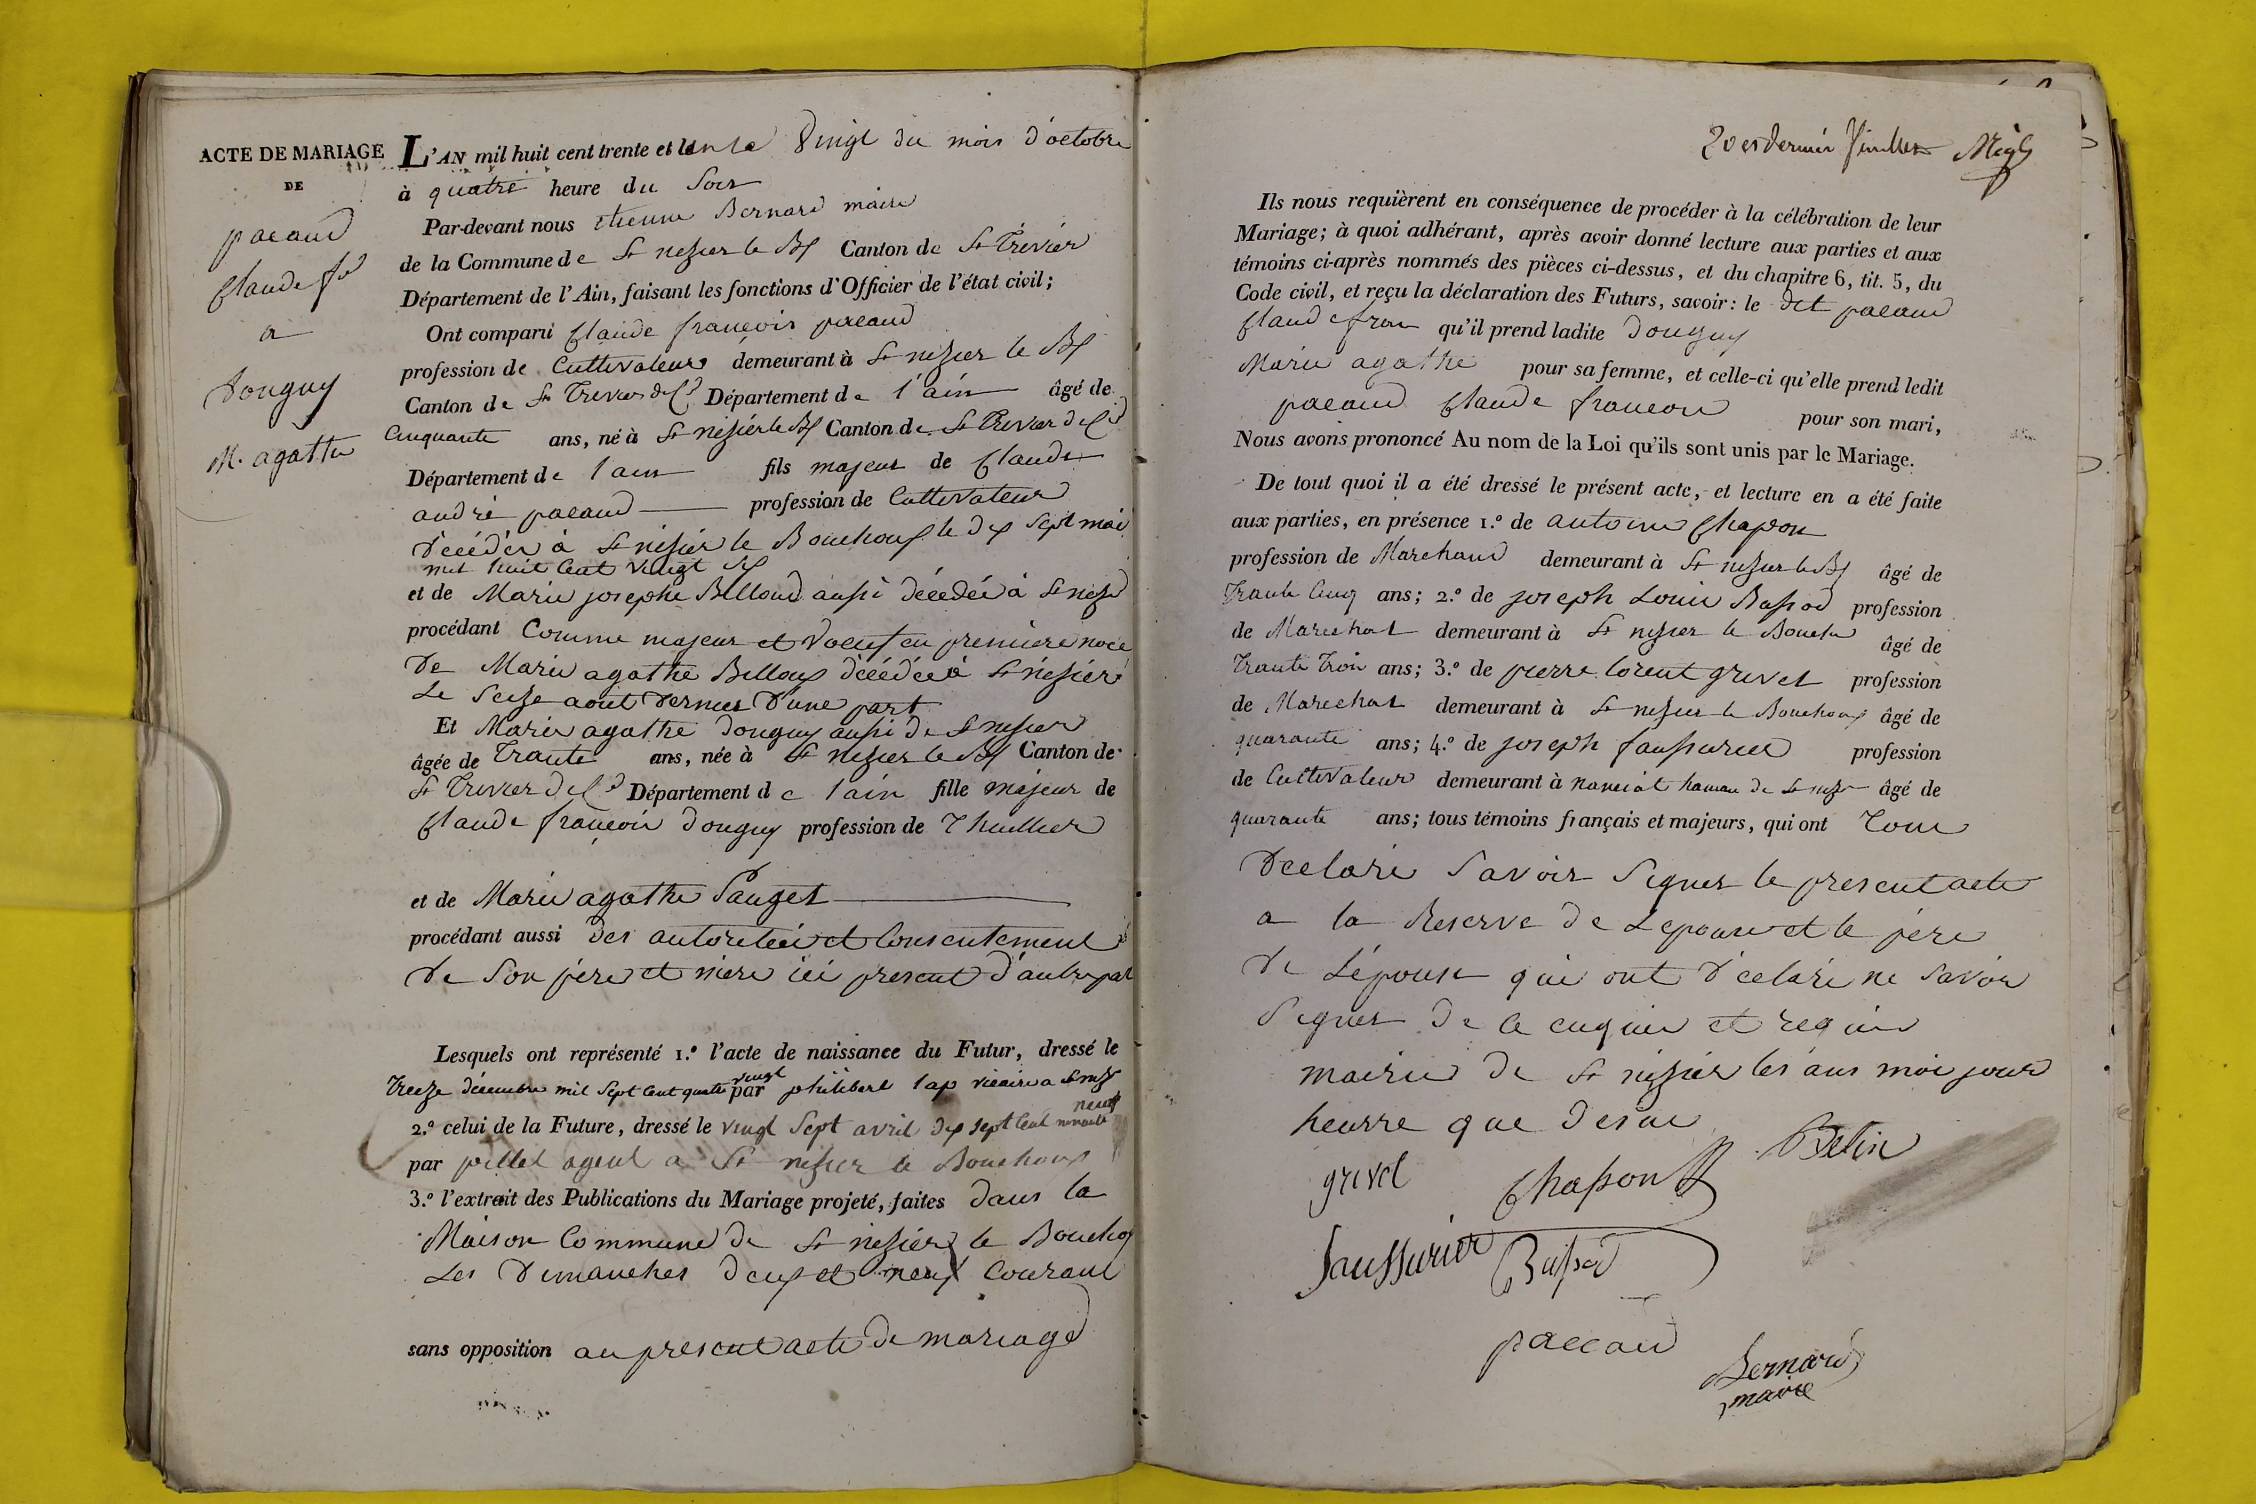 ACTE DE MARIAGE
DE
pacaud
Claude f.s
a
Douguy
M. agathe
L'AN mil huit cent trente et le vingt du mois d'octobre
à quatre heure du Soir
Par-devant nous etienne Bernard maire
de la Commune de St nezier le Bx Canton de St Trivier
Département de l'Ain, faisant les fonctions d'Officier de l'état civil;
Ont comparu Claude françois pacaud
profession de Cultivateur demeurant à St nezier le Bx
Canton de St Trivier de C.d Département de l'ain âgé de
Cinquante ans, né à St nezier le Bx Canton de St Trivier de C.d
Département de l'ain fils majeur de Claude
andré pacaud profession de Cultivateur
décédé à St nizier le Bouchoux le dix sept mai
mil huit Cent vingt
et de Marie josephe Billoud aussi décédée à St nezier
procédant Comme majeur et voeuf en premiere noce
de Marie agathe Billoux décédée à St nezier
Le Seize aout dernier d'une part
Et Marie agathe douguy aussi de St nezier
âgée de Trante ans, née à St nezier le Bx Canton de
St Trivier de C.d Département de l'ain fille majeur de
Claude françois douguy profession de Thuillier
et de Marie agathe Pauget
procédant aussi des autoritée et Consentement
de Son père et mere ici present d'autre part
Lesquels ont représenté 1.º l'acte de naissance du Futur, dressé le
Treize décembre mil Sept Cent quatre vingt par philibert vicaire a St nezr
2.º celui de la Future, dressé le vingt Sept avril dix sept Cent nonante neuf
par pillet agent a St nezier le Bouchoux
3.º l'extrait des Publications du Mariage projeté, faites dans la
Maison Commune de St nezier le Bouchox
Les Dimanches deux et neuf Courant
sans opposition au present acte de mariage
20 et dernier
Ils nous requièrent en conséquence de procéder à la célébration de leur
Mariage; à quoi adhérant, après avoir donné lecture aux parties et aux
témoins ci-après nommés des pièces ci-dessus, et du chapitre 6, tit. 5, du
Code civil, et reçu la déclaration des Futurs, savoir: le dit pacaud
Claude fran qu'il prend ladite douguy
Marie agathe pour sa femme, et celle-ci qu'elle prend ledit
pacaud Claude francois pour son mari,
Nous avons prononcé Au nom de la Loi qu'ils sont unis par le Mariage.
De tout quoi il a été dressé le présent acte, et lecture en a été faite
aux parties, en présence 1.º de antoine Chapon
profession de Marchand demeurant à St nezier le Bx âgé de
Trante Cinq ans; 2.º de joseph Louis Bassod profession
de Marechal demeurant à St nezier le Bouchx âgé de
Trante Trois ans; 3.º de pierre lorent grivel profession
de Marechal demeurant à St nezier le Bouchoux âgé de
quarante ans; 4.º de joseph saussurier profession
de Cultivateur demeurant à nanciat hamau de St nezr âgé de
quarante ans; tous témoins français et majeurs, qui ont Tous
declaré Savoir Signer le present acte
a la Reserve de Lepouse et le père
de Lépouse qui ont déclaré ne Savoir
Signer de ce enquis et requis
mairie de St nizier les ans moi jour
heurre que desue
grivel Chapon Betin
Saussurier Bassod
paccaud
Bernard
maire